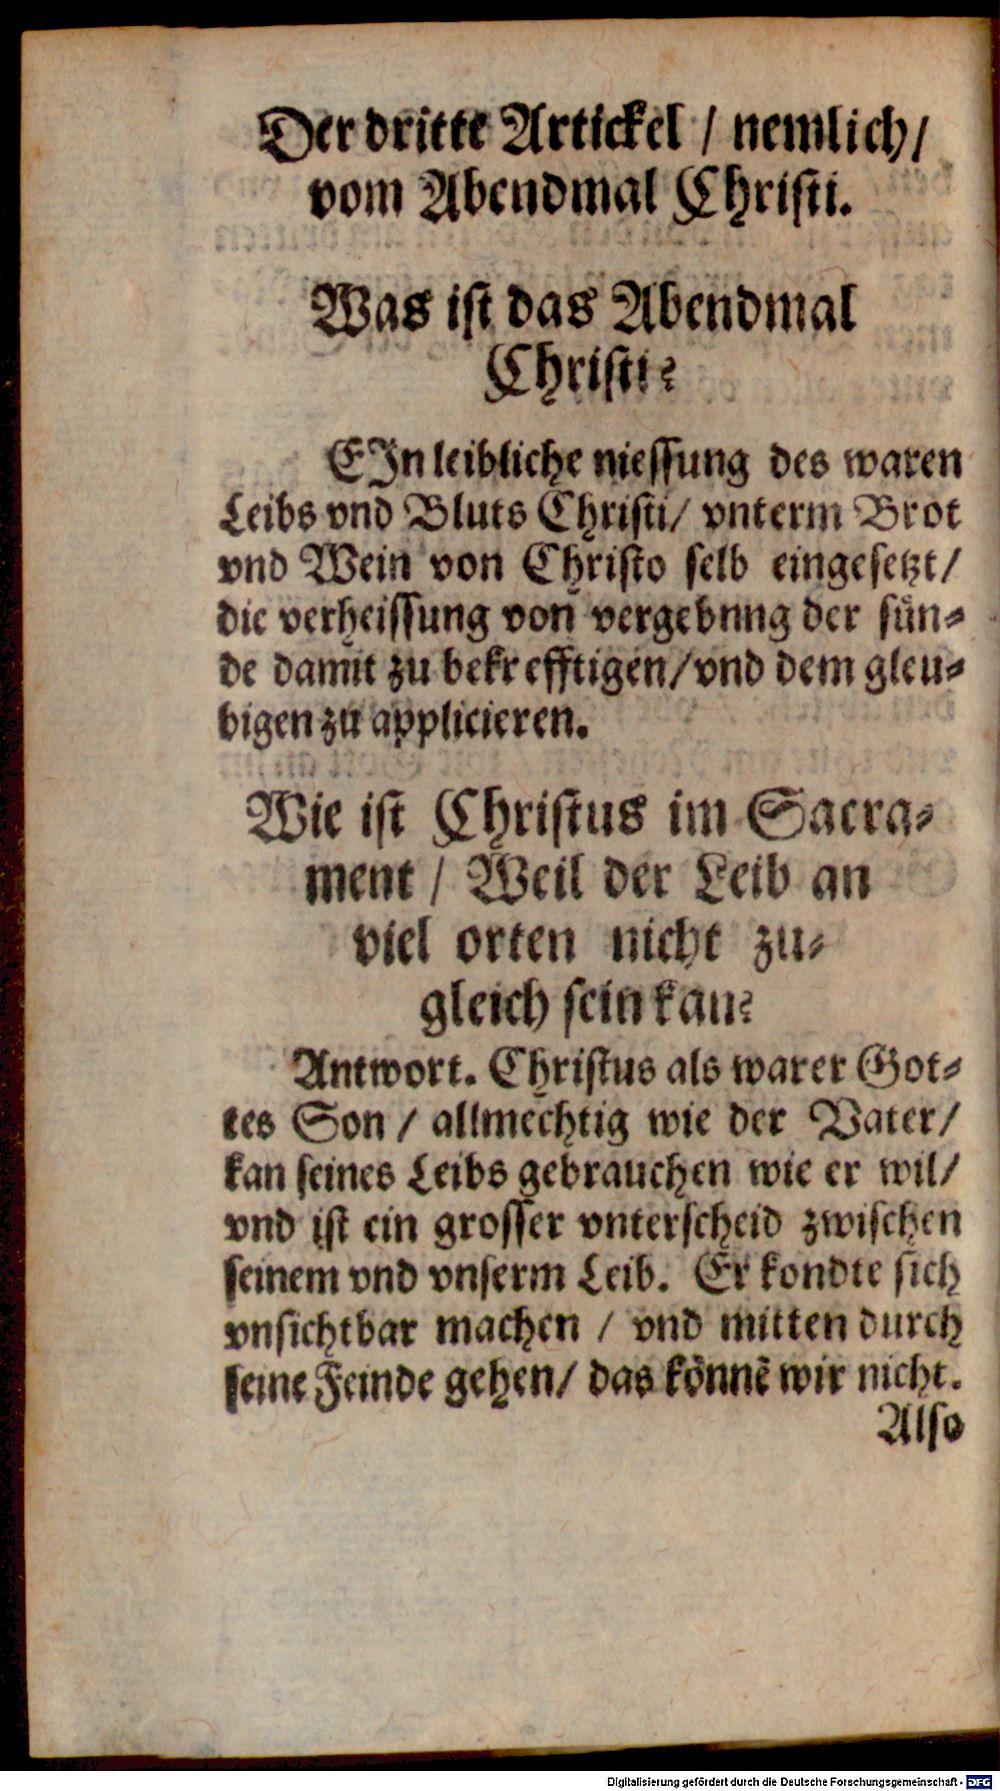 Der dritte Artickel / nemlich /
vom Abendmal Christi.
Was ist das Abendmal
Christi?
EJn leibliche niessung des waren
Leibs vnd Bluts Christi / vnterm Brot
vnd Wein von Christo selb eingesetzt /
die verheissung von vergebnng der sün-
de damit zu bekrefftigen / vnd dem gleu-
bigen zu applicieren.
Wie ist Christus im Sacra-
ment / Weil der Leib an
viel orten nicht zu-
gleich sein kan?
Antwort. Christus als warer Got-
tes Son / allmechtig wie der Vater /
kan seines Leibs gebrauchen wie er wil /
vnd ist ein grosser vnterscheid zwischen
seinem vnd vnserm Leib. Er kondte sich
vnsichtbar machen / vnd mitten durch
seine Feinde gehen / das könnē wir nicht.
Also
Digitalisierung gefördert durch die Deutsche Forschungsgemeinschaft - DFG